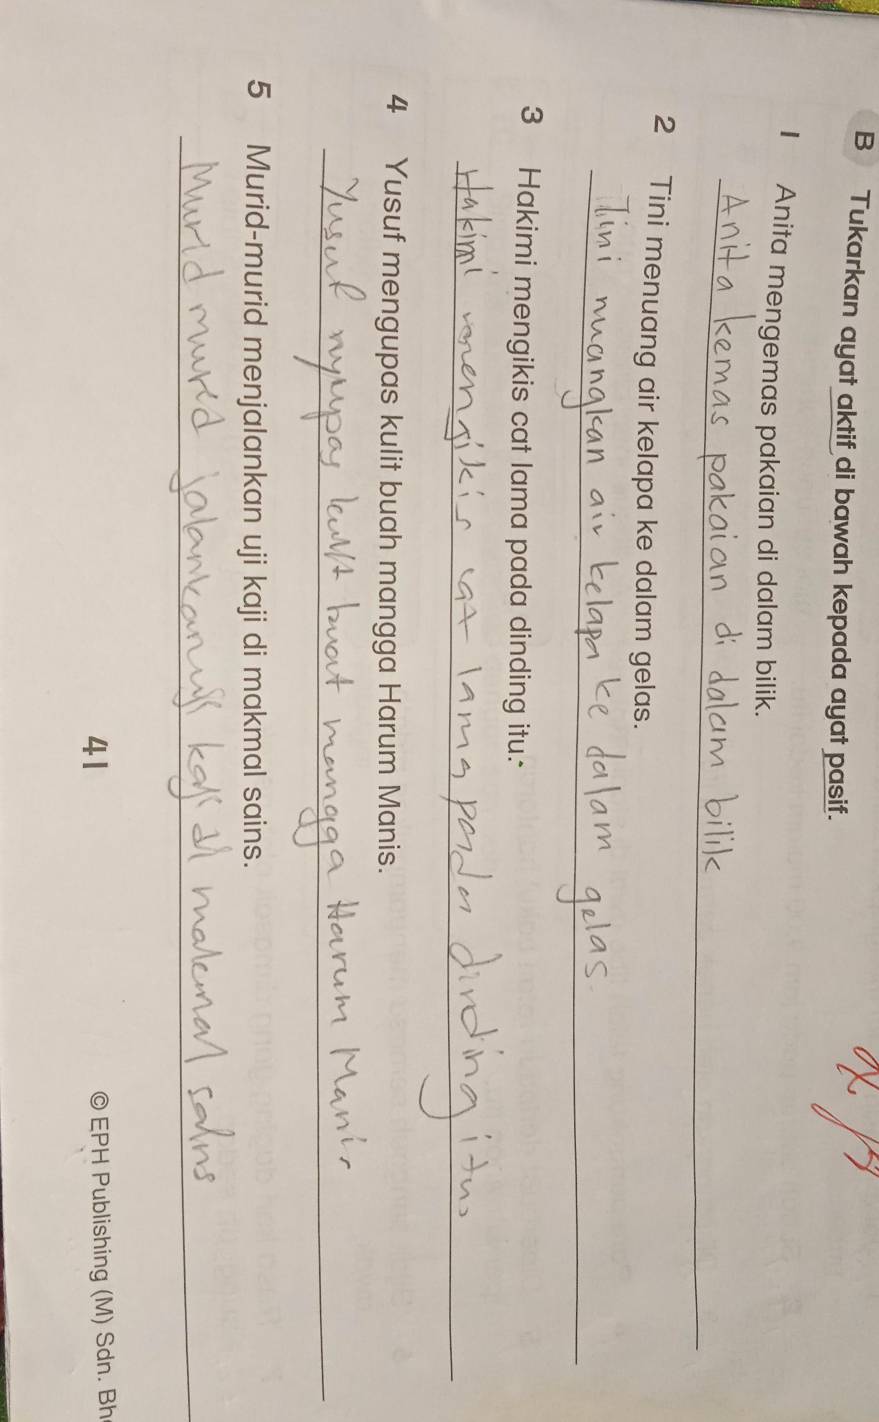 B Tukarkan ayat aktif di bawah kepada ayat pasif.
1 Anita mengemas pakaian di dalam bilik.
Anita kemas pakaian di dalam bilik
2 Tini menuang air kelapa ke dalam gelas.
Tini nuangkan air kelapa ke dalam gelas.
3 Hakimi mengikis cat lama pada dinding itu.
Hakimi cat lama pada dinding itu.
4 Yusuf mengupas kulit buah mangga Harum Manis.
Yusuf nyupas kulit buat mangga Harum Manis
5 Murid-murid menjalankan uji kaji di makmal sains.
Murid murid jalankan uji kaji di makmal sains
41
© EPH Publishing (M) Sdn. Bh